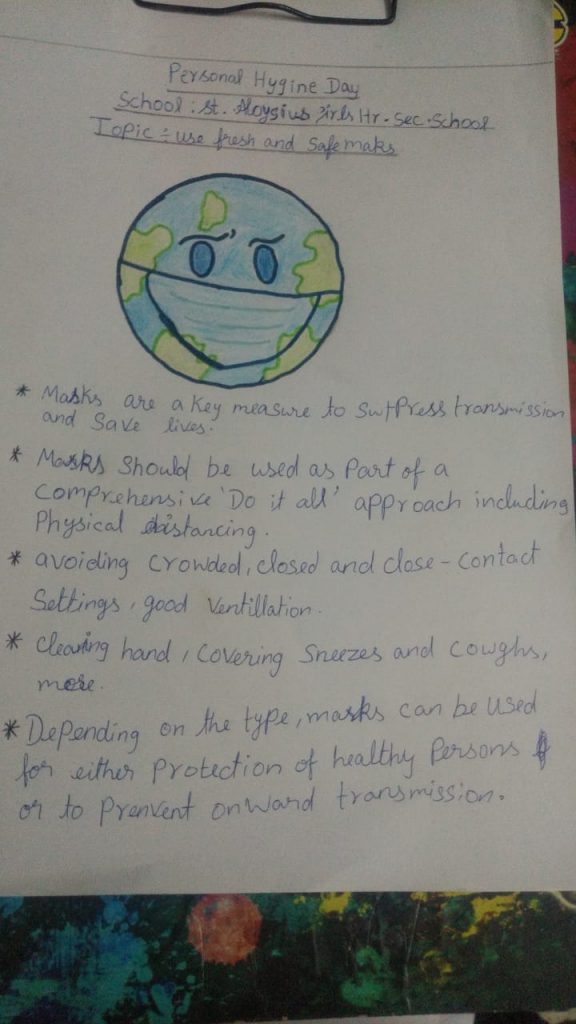 Personal Hygine Day
School : St. Aloysius Girls Hr. Sec. School
Topic :- use fresh and safe maks
* Masks are a key measure to suppress transmission
and save lives.
* Masks should be used as part of a
comprehensive 'Do it all' approach including
Physical distancing.
* avoiding crowded, closed and close-contact
settings, good ventillation.
* cleaning hand, covering sneezes and cowghs,
more.
* Depending on the type, masks can be used
for either protection of healthy persons
or to prenvent onward transmission.